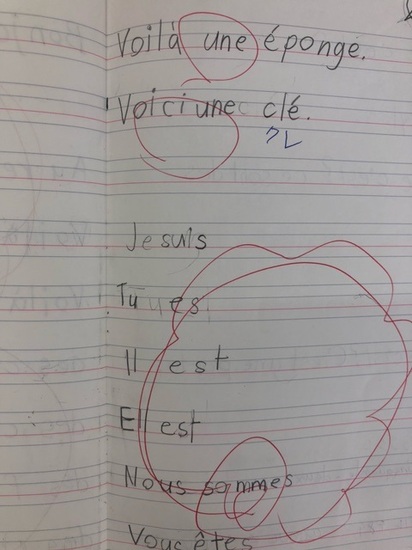 Voilà une éponge.
Voici une clé.
Je suis
Tu es
Il est
Ell est
Nous sommes
Vous êtes